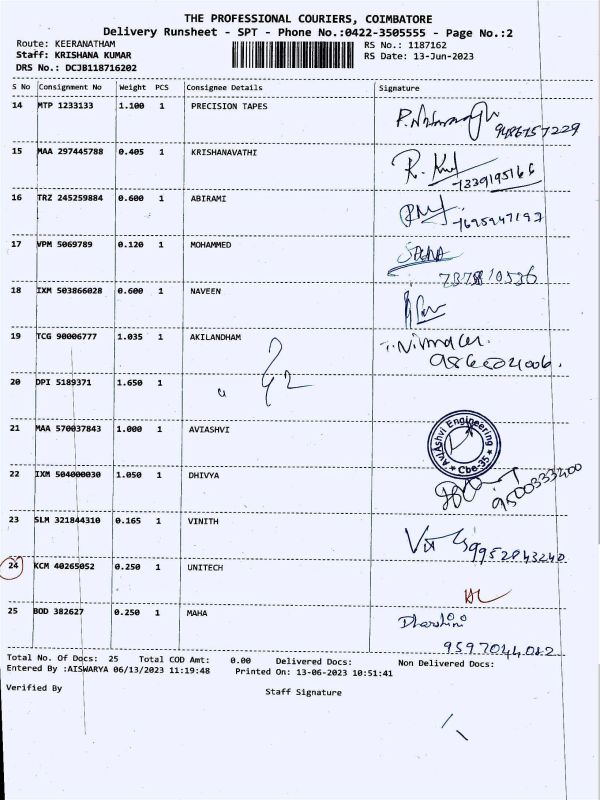 THE PROFESSIONAL COURIERS, COIMBATORE
Delivery Runsheet - SPT - Phone No.:0422-3505555 - Page No.:2
Route: KEERANATHAM RS No.: 1187162
Staff: KRISHANA KUMAR RS Date: 13-Jun-2023
DRS No.: DCJB118716202
S No Consignment No Weight PCS Consignee Details Signature
14 MTP 1233133 1.100 1 PRECISION TAPES
9486757229
15 MAA 297445788 0.405 1 KRISHANAVATHI
7339195166
16 TRZ 245259884 0.600 1 ABIRAMI
17 VPM 5069789 0.120 1 MOHAMMED
18 IXM 503866028 0.600 1 NAVEEN
19 TCG 90006777 1.035 1 AKILANDHAM
20 DPI 5189371 1.650 1
21 MAA 570037843 1.000 1 AVIASHVI
AviAshvi Engineering
Cbe-35
22 IXM 504000030 1.050 1 DHIVYA
9500333200
23 SLM 321844310 0.165 1 VINITH
9952843240
24 KCM 40265052 0.250 1 UNITECH
25 BOD 382627 0.250 1 MAHA
Dharshini
9597044082
Total No. Of Docs: 25 Total COD Amt: 0.00 Delivered Docs: Non Delivered Docs:
Entered By :AISWARYA 06/13/2023 11:19:48 Printed On: 13-06-2023 10:51:41
Verified By Staff Signature